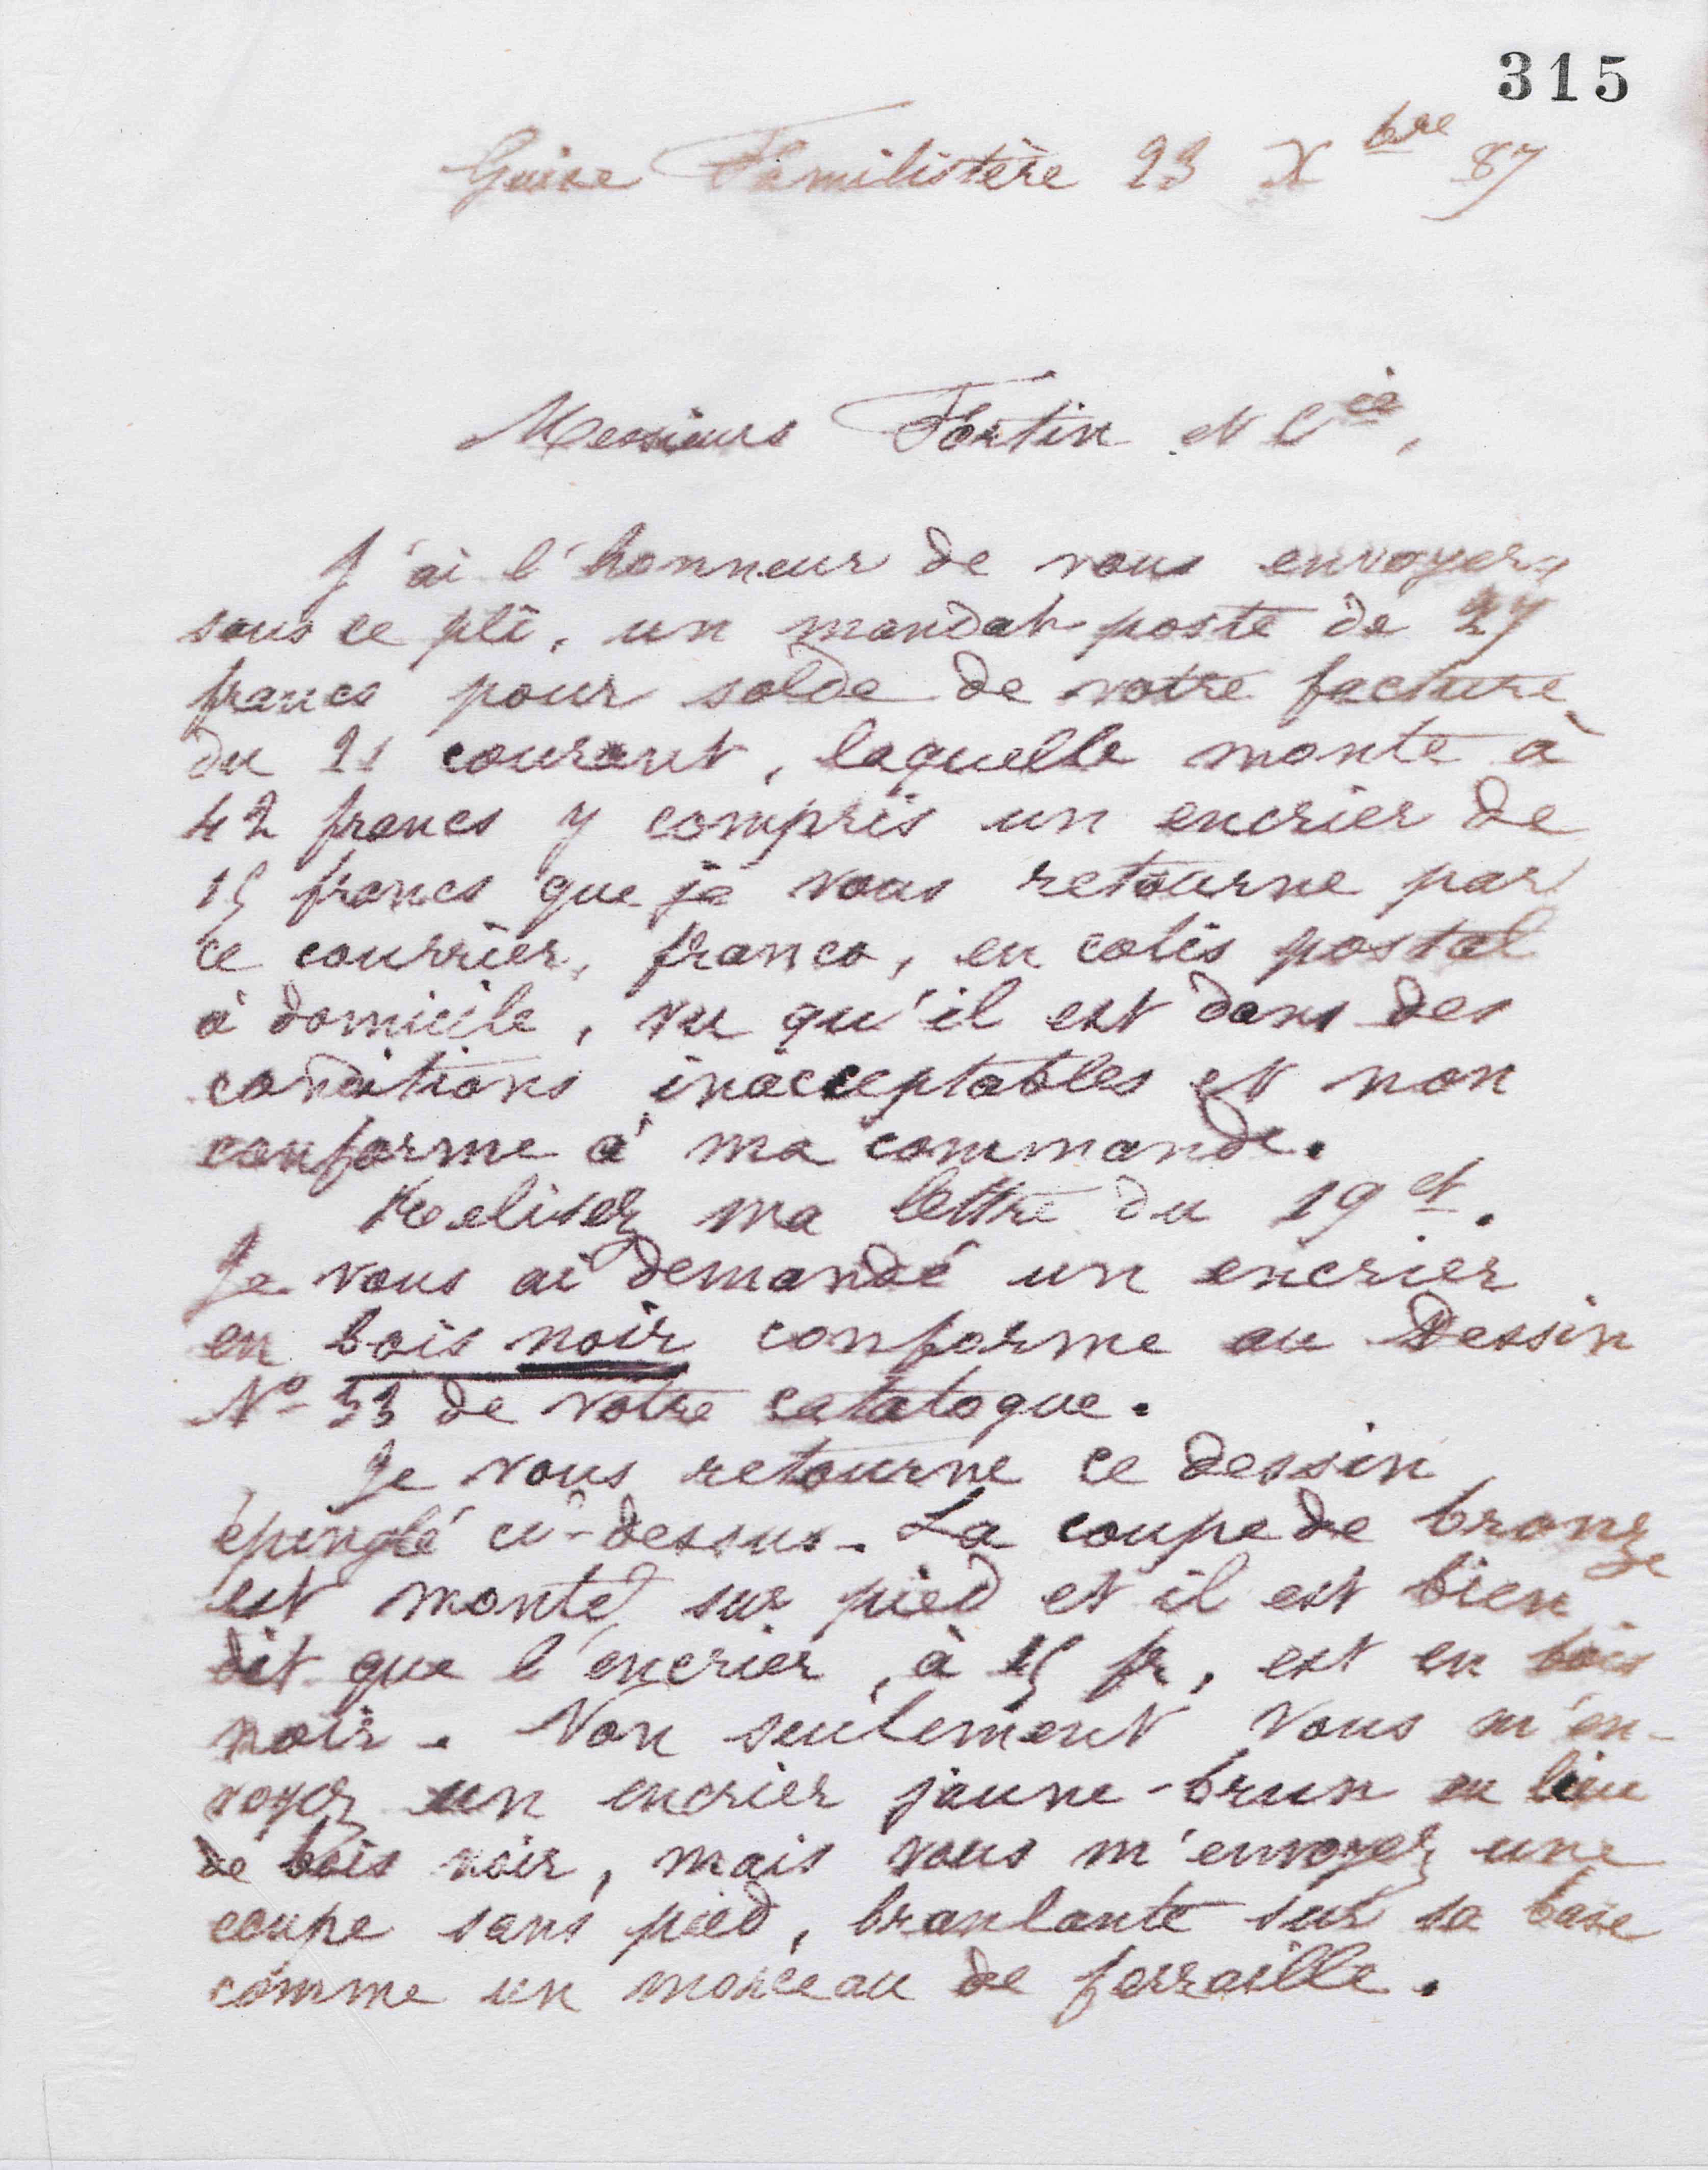 315
Guise Familistère 23 Xbre 87
Messieurs Fortin et Cie,
J'ai l'honneur de vous envoyer,
sous ce pli, un mandat-poste de 27
francs pour solde de votre facture
du 21 courant, laquelle monte à
42 francs y compris un encrier de
15 francs que je vous retourne par
ce courrier, franco, en colis postal
à domicile, vu qu'il est dans des
conditions inacceptables et non
conforme à ma commande.
Relisez ma lettre du 19 ct.
Je vous ai demandé un encrier
en bois noir conforme au Dessin
No 53 de votre catalogue.
Je vous retourne ce dessin
épinglé ci-dessus. La coupe de bronze
est monté sur pied et il est bien
dit que l'encrier, à 15 fr, est en bois
noir. Non seulement vous m'en-
voyez un encrier jaune-brun au lieu
de bois noir, mais vous m'envoyez une
coupe sans pied, branlante sur sa base
comme un morceau de ferraille.